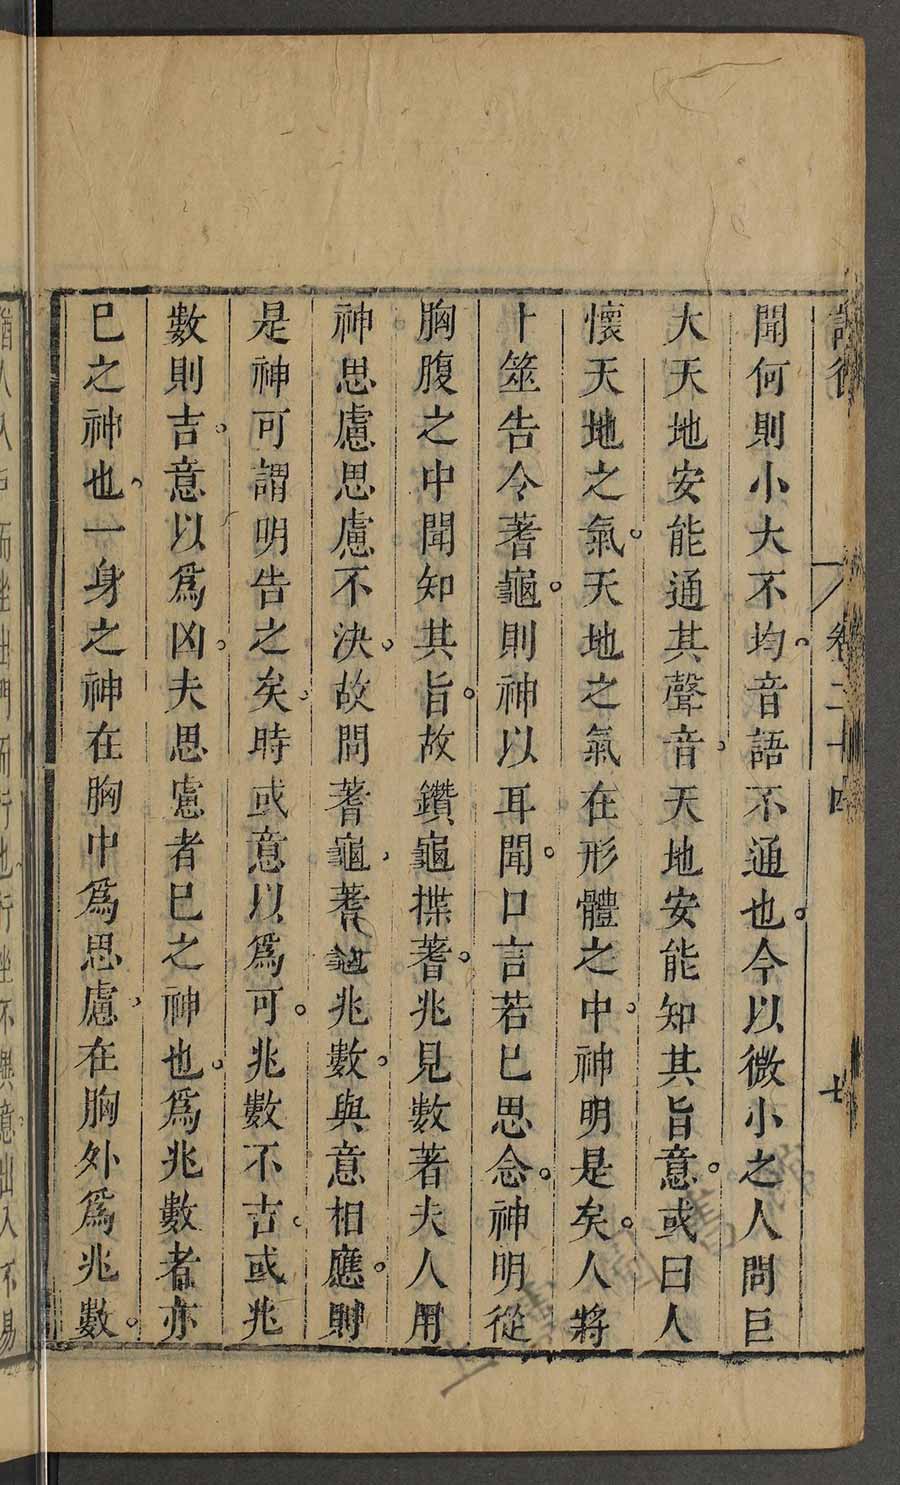 論衡 卷二十四 七
聞何則小大不均。音語不通也。今以微小之人問巨
大天地安能通其聲音。天地安能知其旨意。或曰人
懷天地之氣。天地之氣在形體之中。神明是矣。人將
卜筮告令蓍龜。則神以耳聞。口言若已思念。神明從
胸腹之中聞知其旨。故鑽龜揲蓍。兆見數著夫人用
神思慮思慮不決。故問蓍龜、蓍龜兆數。與意相應。則
是神可謂明告之矣。時或意以爲可。兆數不吉。或兆
數則吉。意以爲凶。夫思慮者已之神也。爲兆數者亦
已之神也、一身之神在胸中爲思慮、在胸外爲兆數。